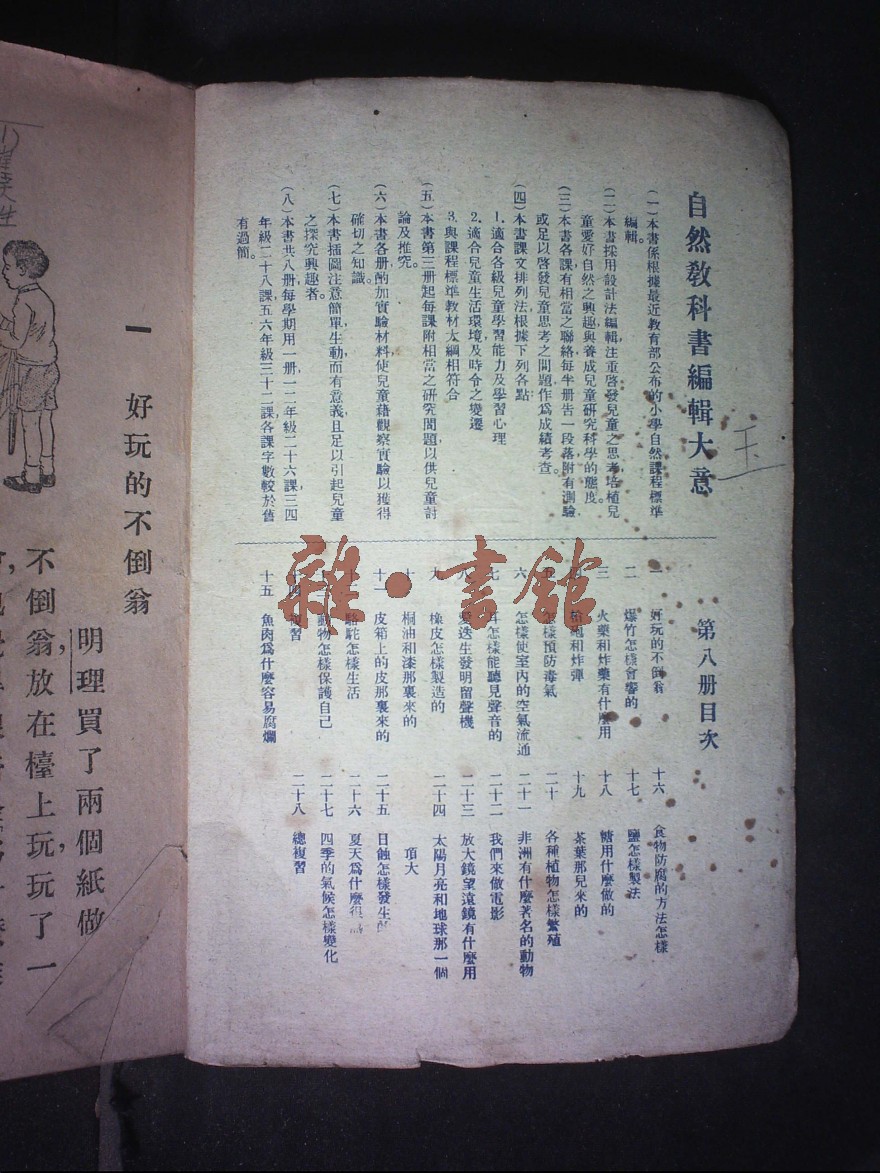 自然敎科書編輯大意
(一)本書係根據最近敎育部公布的小學自然課程標準
編輯。
(二)本書採用設計法編輯,注重啓發兒童之思考,培植兒
童愛好自然之興趣與養成兒童硏究科學的態度。
(三)本書各課有相當之聯絡,每半册吿一段落,附有測驗
或足以啓發兒童思考之問題,作爲成績考查。
(四)本書課文排列法,根據下列各點
1.適合各級兒童學習能力及學習心理
2.適合兒童生活環境及時令之變遷
3.與課程標準敎材大綱相符合
(五)本書第三册起,每課附相當之硏究問題,以供兒童討
論及推究。
(六)本書各册酌加實驗材料,使兒童藉觀察實驗以獲得
確切之知識。
(七)本書揷圖注意簡單生動而有意義,且足以引起兒童
之探究興趣者。
(八)本書共八册,每學期用一册,一二年級二十六課,三四
年級二十八課,五六年級三十二課,各課字數較於舊
有過簡。
第八册目次
一 好玩的不倒翁
二 爆竹怎樣會響的
三 火藥和炸藥有什麼用
和炸彈
怎樣預防毒氣
六 怎樣使室內的空氣流通
七 耳怎樣能聽見聲音的
八 愛迭生發明留聲機
九 橡皮怎樣製造的
十 桐油和漆那裏來的
十一 皮箱上的皮那裏來的
駱駝怎樣生活
動物怎樣保護自己
十四 複習
十五 魚肉爲什麼容易腐爛
十六 食物防腐的方法怎樣
十七 鹽怎樣製法
十八 糖用什麼做的
十九 茶葉那兒來的
二十 各種植物怎樣繁殖
二十一 非洲有什麼著名的動物
二十二 我們來做電影
二十三 放大鏡望遠鏡有什麼用
二十四 太陽月亮和地球那一個
頂大
二十五 日蝕怎樣發生的
二十六 夏天爲什麼很
二十七 四季的氣候怎樣變化
二十八 總複習
王
雜·書館
一 好玩的不倒翁
明理買了兩個紙做
不倒翁,放在檯上玩,玩了一